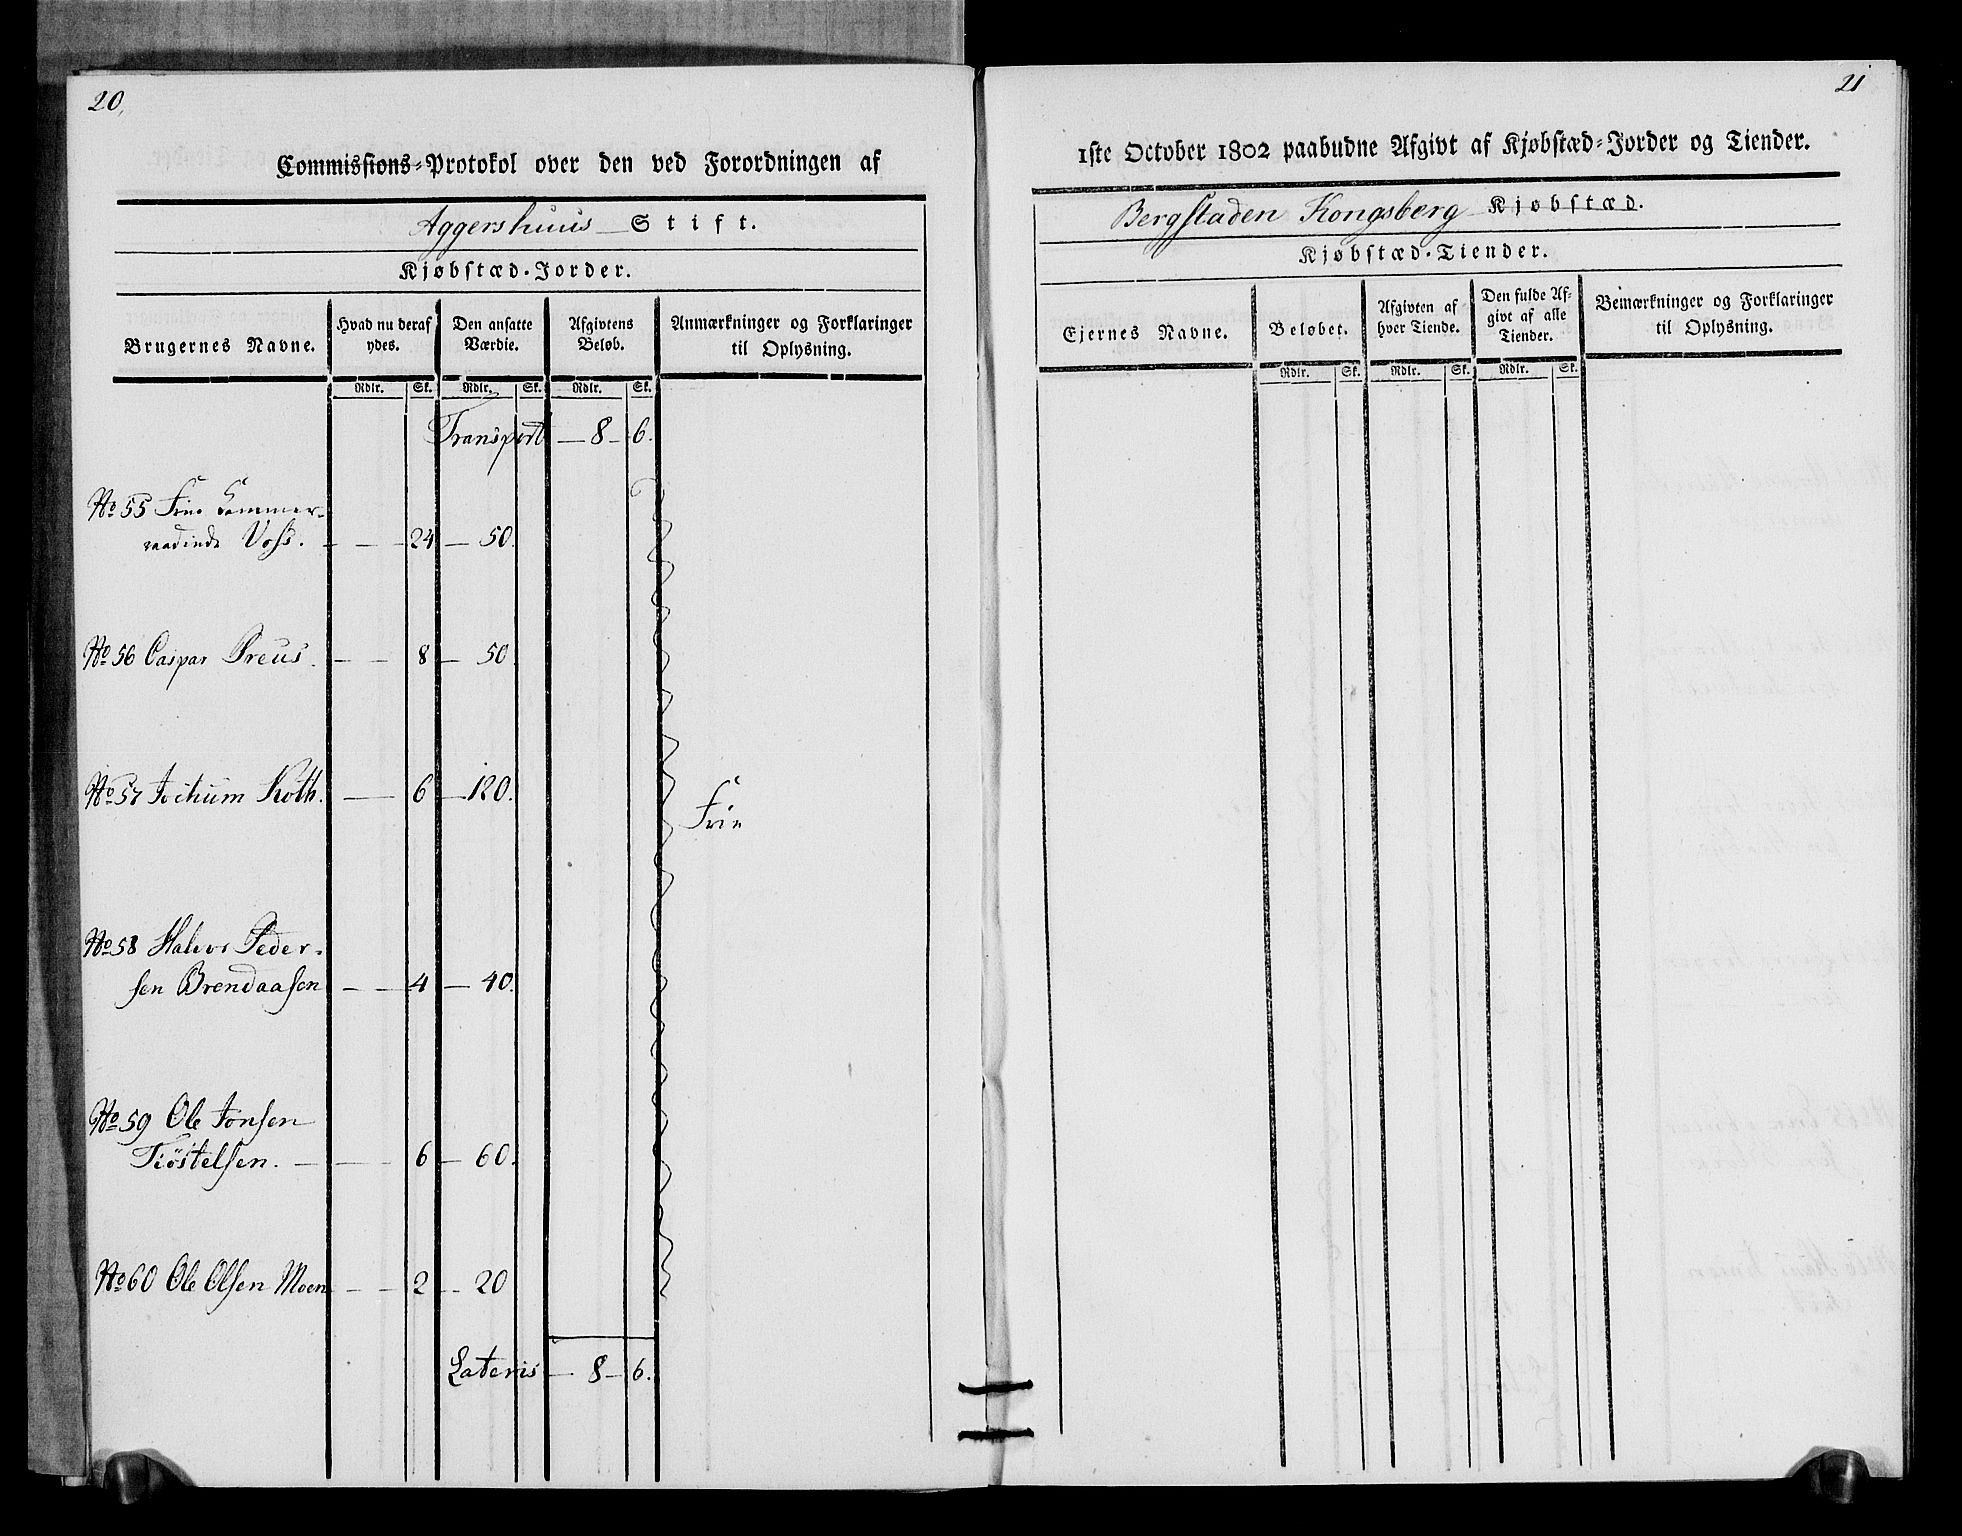 20,
Commissions-Protokol over den ved Forordningen af
Aggershuus Stift.
Kjøbstæd-Jorder.
Brugernes Navne.
Hvad nu deraf ydes.
Den ansatte Værdie.
Afgivtens Beløb.
Anmærkninger og Forklaringer til Oplysning.
Rdlr. Sk. Rdlr. Sk. Rdlr. Sk.
Transport — 8 — 6.
No 55 Frue Commer-
raadinde Voss. — — 24 — 50.
No 56 Caspar Preus. — — 8 — 50
No 57 Jochum Koth. — 6 — 120.
Frie
No 58 Halvor Peder-
sen Brendaasen — — 4 — 40.
No 59 Ole Jonsen
Tiøstelsen. — — 6 — 60.
No 60 Ole Olsen Moen — — 2 — 20
Lateris — 8 — 6.
21
1ste October 1802 paabudne Afgivt af Kjøbstæd-Jorder og Tiender.
Bergstaden Kongsberg Kjøbstæd.
Kjøbstæd-Tiender.
Ejernes Navne.
Beløbet.
Afgivten af hver Tiende.
Den fulde Afgivt af alle Tiender.
Bemærkninger og Forklaringer til Oplysning.
Rdlr. Sk. Rdlr. Sk. Rdlr. Sk.